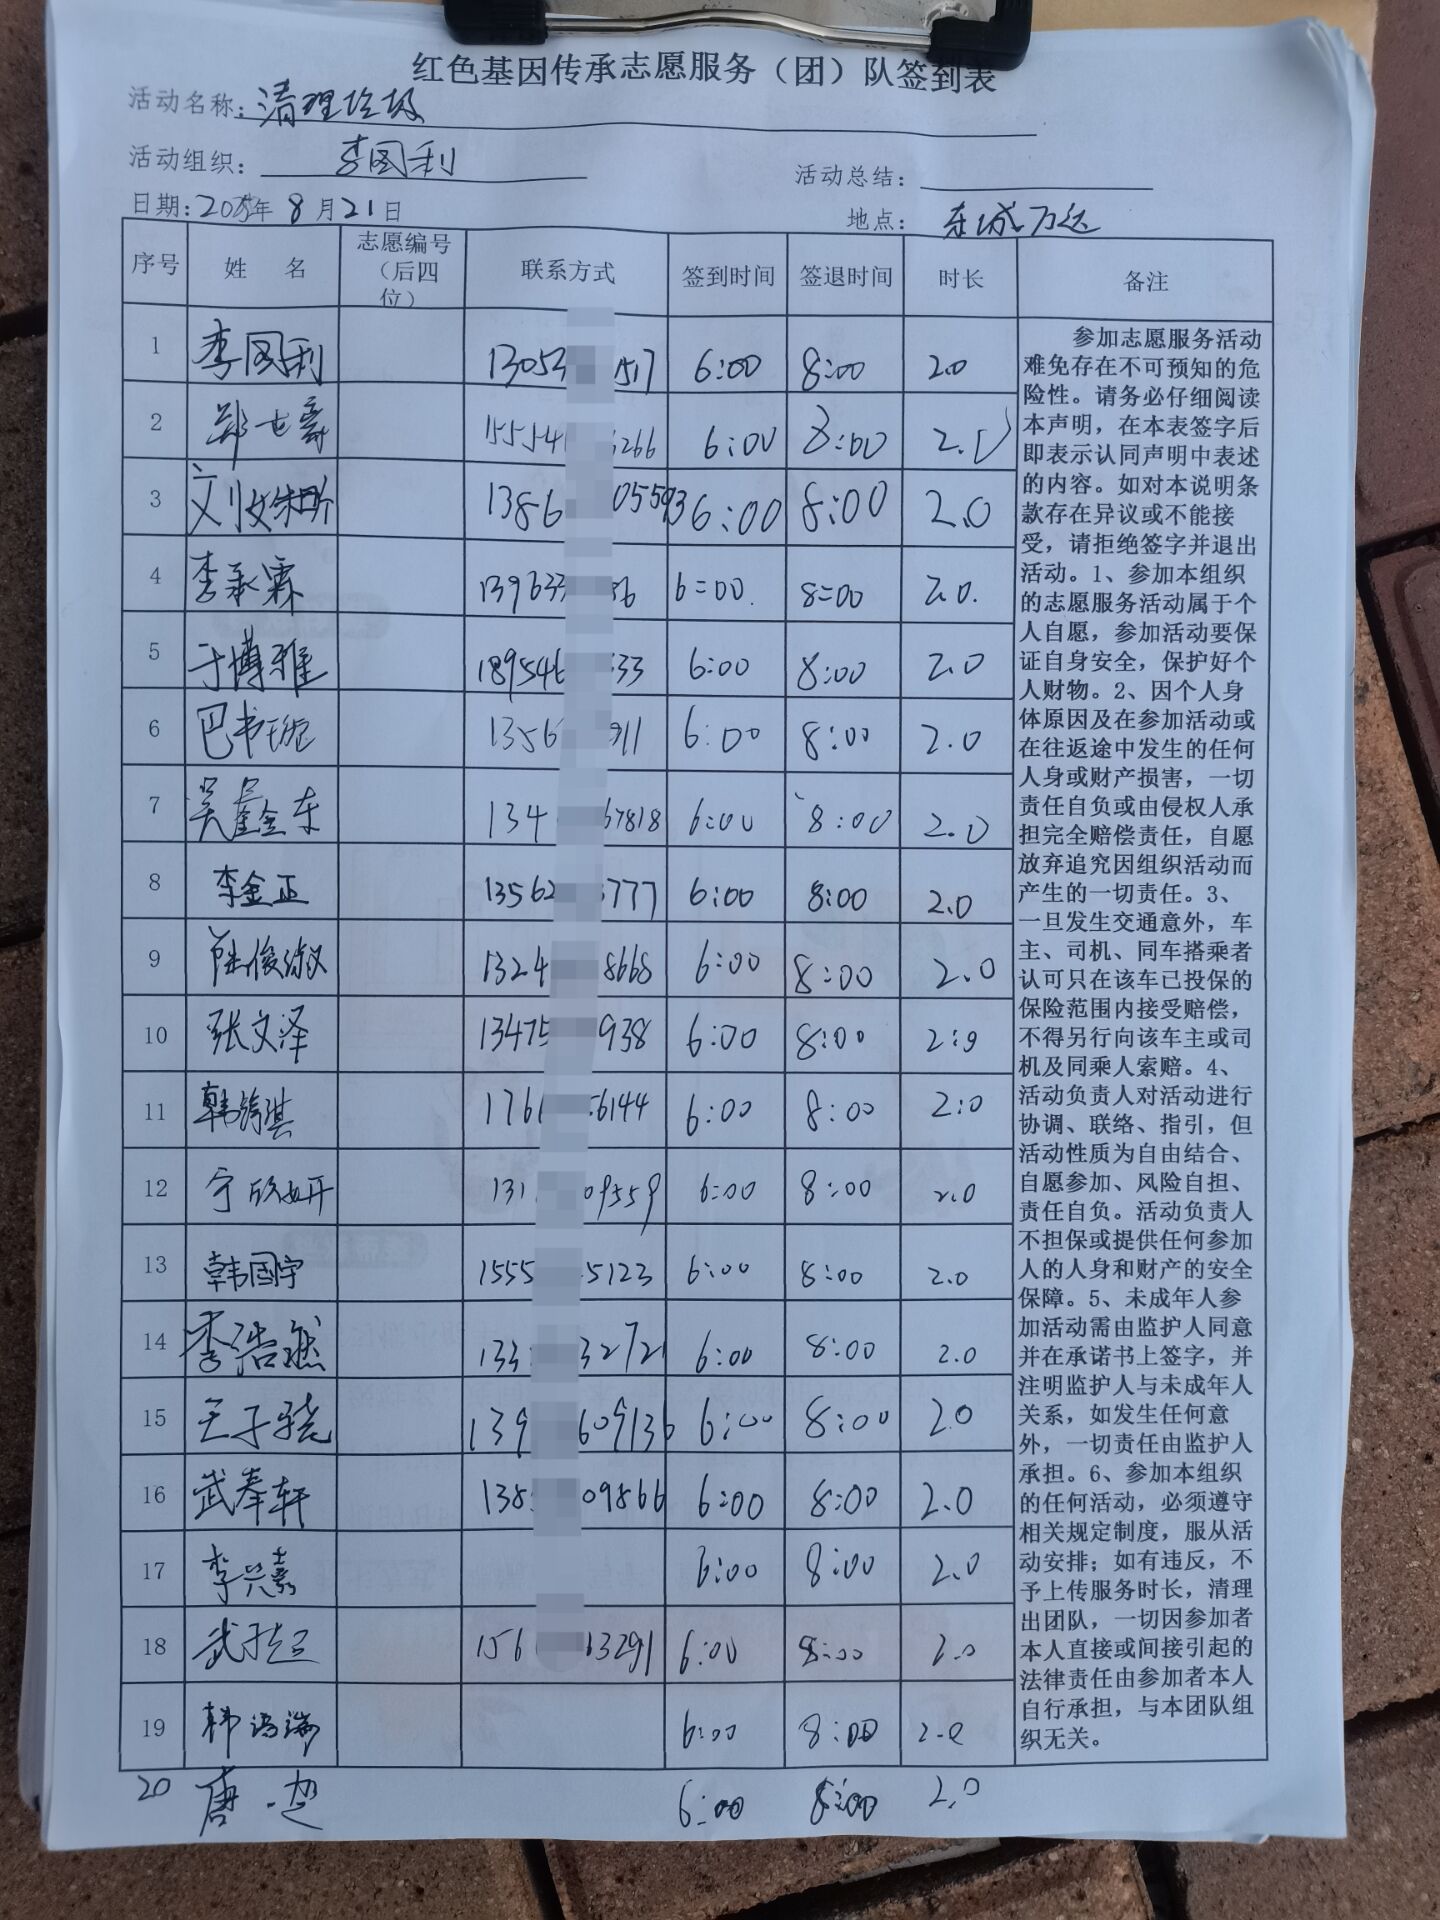 红色基因传承志愿服务（团）队签到表
活动名称：清理垃圾
活动组织：李国利
活动总结：
日期：年 8 月 21 日
地点：东城万达
序号 姓 名 志愿编号（后四位） 联系方式 签到时间 签退时间 时长 备注
1 李国利 13053 1517 6:00 8:00 2.0
2 郑 15554 266 6:00 8:00 2.0
3 刘 1386 05593 6:00 8:00 2.0
4 李承霖 139633 86 6:00 8:00 2.0.
5 于博雅 189546 333 6:00 8:00 2.0
6 巴书琬 1356 911 6:00 8:00 2.0
7 吴鑫东 134 67818 6:00 8:00 2.0
8 李金正 13562 777 6:00 8:00 2.0
9 陈俊 1324 8668 6:00 8:00 2.0
10 张文泽 13475 938 6:00 8:00 2:0
11 韩 176 6144 6:00 8:00 2:0
12 宁欣 131 09559 6:00 8:00 2.0
13 韩国宇 1555 5123 6:00 8:00 2.0
14 李浩然 133 32721 6:00 8:00 2.0
15 王子骁 139 609136 6:00 8:00 2.0
16 武奉轩 138 09866 6:00 8:00 2.0
17 李兴嘉 6:00 8:00 2.0
18 武子超 156 3291 6:00 8:00 2.0
19 韩 6:00 8:00 2.0
20 唐 6:00 8:00 2.0
参加志愿服务活动
难免存在不可预知的危
险性。请务必仔细阅读
本声明，在本表签字后
即表示认同声明中表述
的内容。如对本说明条
款存在异议或不能接
受，请拒绝签字并退出
活动。1、参加本组织
的志愿服务活动属于个
人自愿，参加活动要保
证自身安全，保护好个
人财物。2、因个人身
体原因及在参加活动或
在往返途中发生的任何
人身或财产损害，一切
责任自负或由侵权人承
担完全赔偿责任，自愿
放弃追究因组织活动而
产生的一切责任。3、
一旦发生交通意外，车
主、司机、同车搭乘者
认可只在该车已投保的
保险范围内接受赔偿，
不得另行向该车主或司
机及同乘人索赔。4、
活动负责人对活动进行
协调、联络、指引，但
活动性质为自由结合、
自愿参加、风险自担、
责任自负。活动负责人
不担保或提供任何参加
人的人身和财产的安全
保障。5、未成年人参
加活动需由监护人同意
并在承诺书上签字，并
注明监护人与未成年人
关系，如发生任何意
外，一切责任由监护人
承担。6、参加本组织
的任何活动，必须遵守
相关规定制度，服从活
动安排；如有违反，不
予上传服务时长，清理
出团队，一切因参加者
本人直接或间接引起的
法律责任由参加者本人
自行承担，与本团队组
织无关。